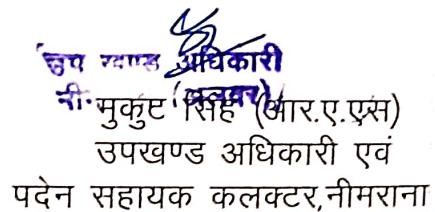 उप खण्ड अधिकारी
नी. (अलवर)
मुकुट सिंह (आर.ए.एस)
उपखण्ड अधिकारी एवं
पदेन सहायक कलक्टर,नीमराना